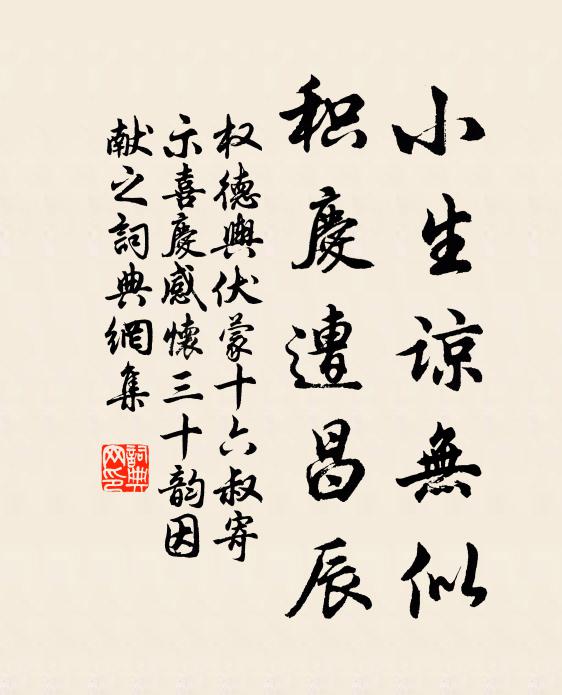 小生諒無似
积慶遭昌辰
权德輿伏蒙十六叔寄
示喜慶感懷三十韵因
献之詞典網集
詞典网印